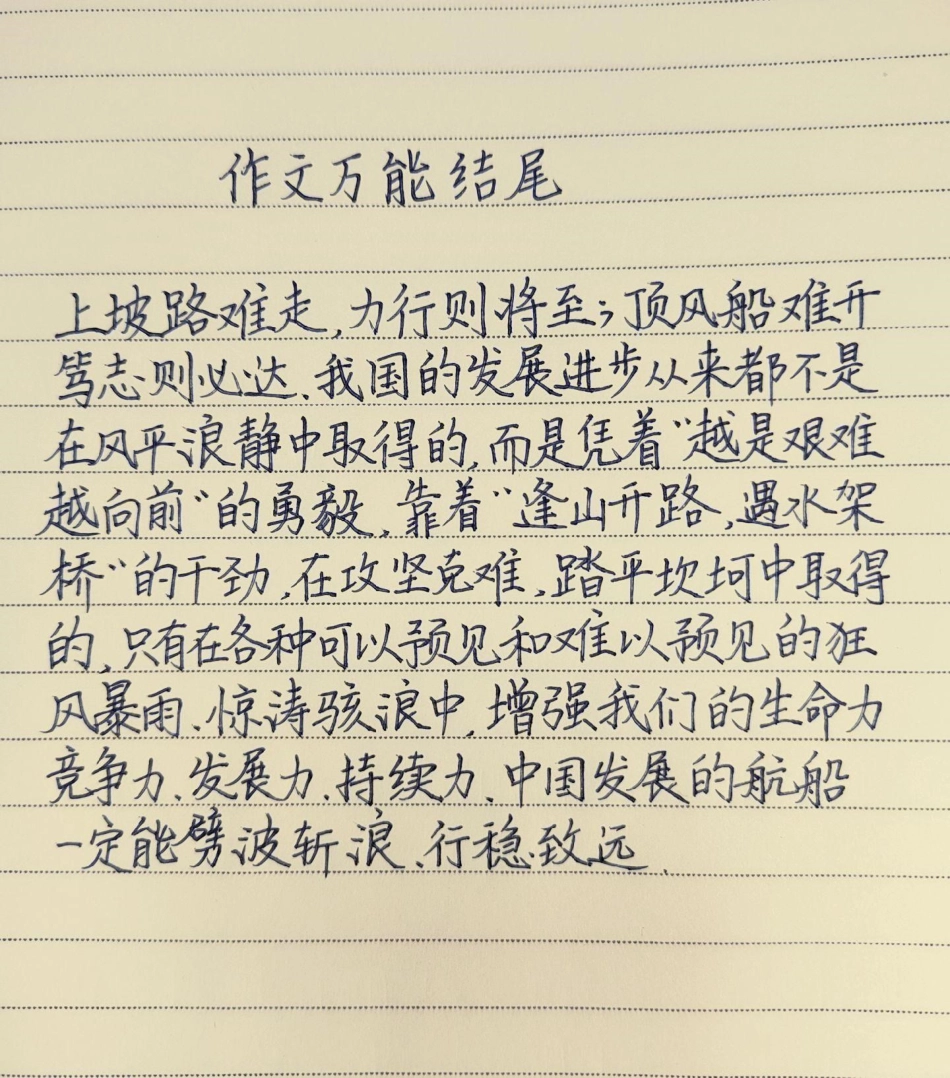 作文万能结尾
上坡路难走,力行则将至;顶风船难开
笃志则必达.我国的发展进步从来都不是
在风平浪静中取得的,而是凭着“越是艰难
越向前”的勇毅,靠着“逢山开路,遇水架
桥”的干劲,在攻坚克难,踏平坎坷中取得
的,只有在各种可以预见和难以预见的狂
风暴雨、惊涛骇浪中,增强我们的生命力
竞争力、发展力、持续力、中国发展的航船
一定能劈波斩浪、行稳致远.